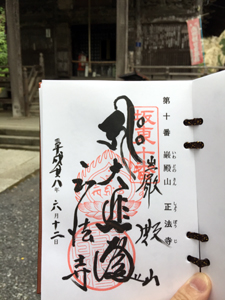 第十番 巌殿山 正法寺
坂東十番
巌殿山
大悲閣
正法寺
六月十二日